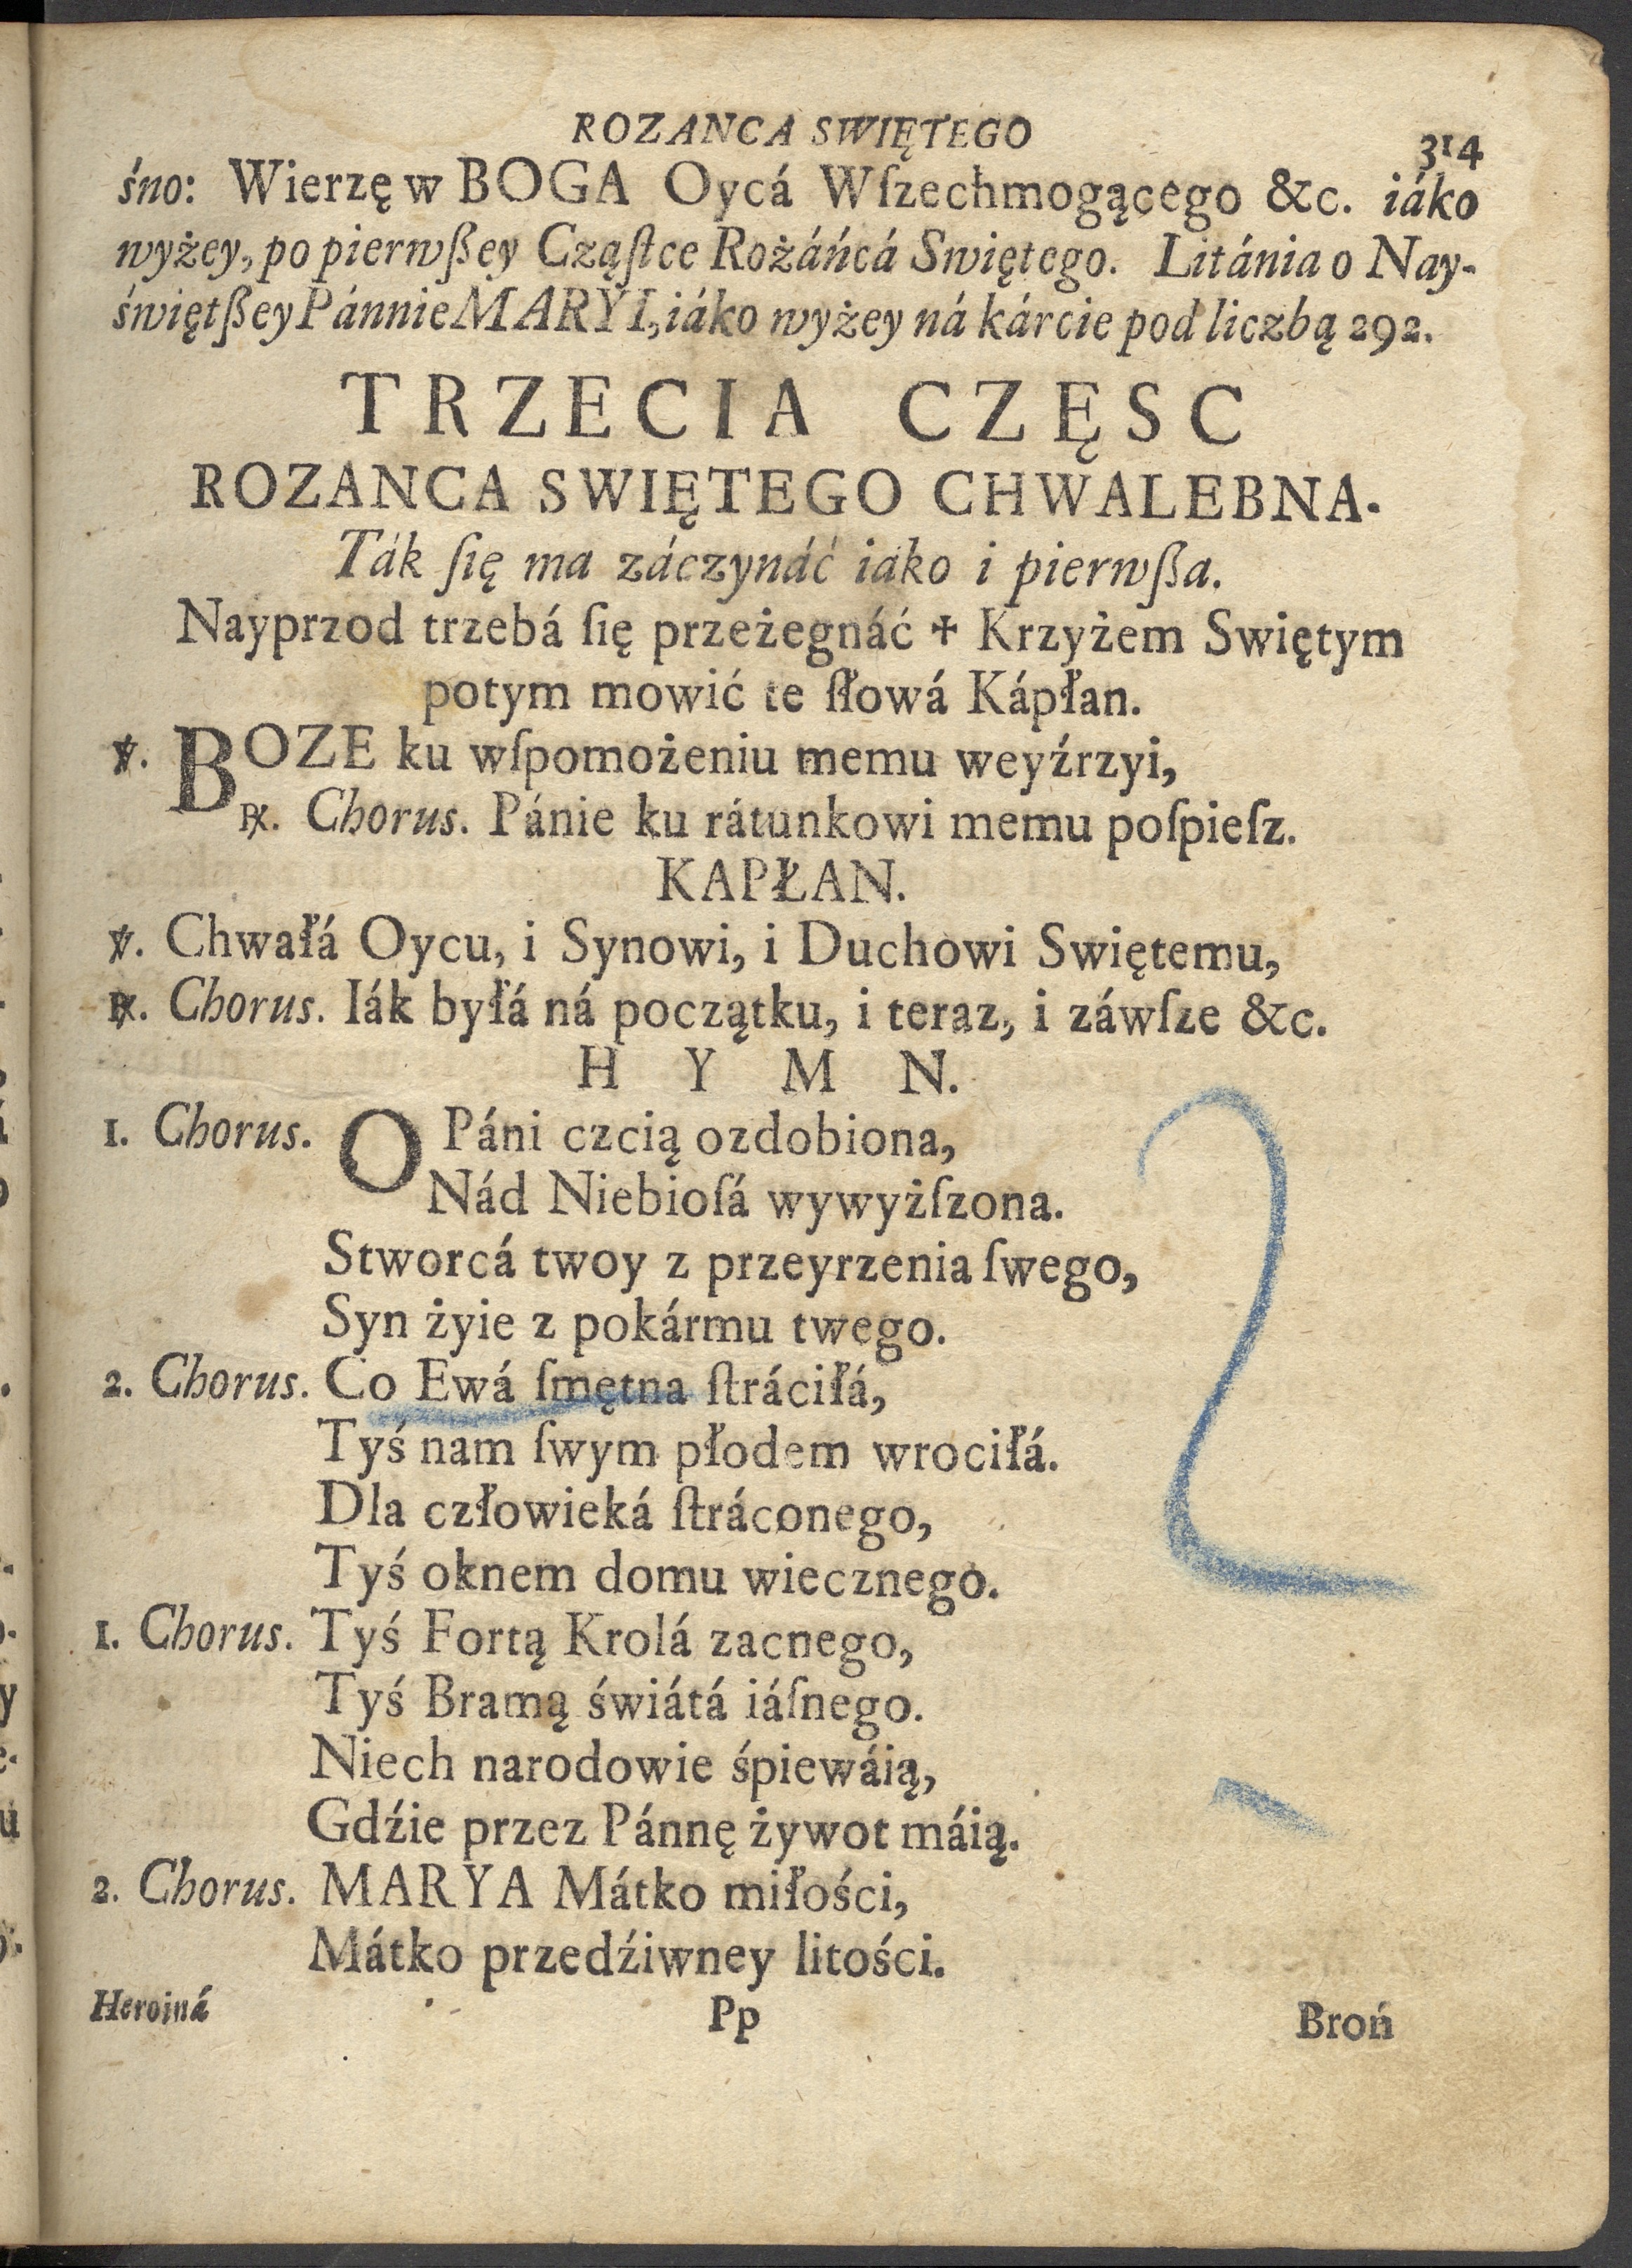 ROZANCA SWIĘTEGO
314
śno: Wierzę w BOGA Oycá Wſzechmogącego &c. iáko
wyżey, po pierwßey Cząſtce Rożáńcá Swiętego. Litánia o Nay-
świętßey Pánnie MARYI, iáko wyżey ná kárcie pod liczbą 292.
TRZECIA CZĘSC
ROZANCA SWIĘTEGO CHWALEBNA.
Ták ſię ma záczynáć iáko i pierwßa.
Nayprzod trzebá ſię przeżegnáć ✝ Krzyżem Swiętym
potym mowić te ſłowá Kápłan.
℣. BOZE ku wſpomożeniu memu weyźrzyi,
℟. Chorus. Pánie ku rátunkowi memu poſpieſz.
KAPŁAN.
℣. Chwałá Oycu, i Synowi, i Duchowi Swiętemu,
℟. Chorus. Iák byłá ná początku, i teraz, i záwſze &c.
H Y M N.
1. Chorus. O Páni czcią ozdobiona,
Nád Niebioſá wywyżſzona.
Stworcá twoy z przeyrzenia ſwego,
Syn żyie z pokármu twego.
2. Chorus. Co Ewá ſmętna ſtráciłá,
Tyś nam ſwym płodem wrociłá.
Dla człowieká ſtráconego,
Tyś oknem domu wiecznego.
1. Chorus. Tyś Fortą Krolá zacnego,
Tyś Bramą świátá iáſnego.
Niech narodowie śpiewáią,
Gdźie przez Pánnę żywot máią.
2. Chorus. MARYA Mátko miłości,
Mátko przedźiwney litości.
Heroiná Pp Broń